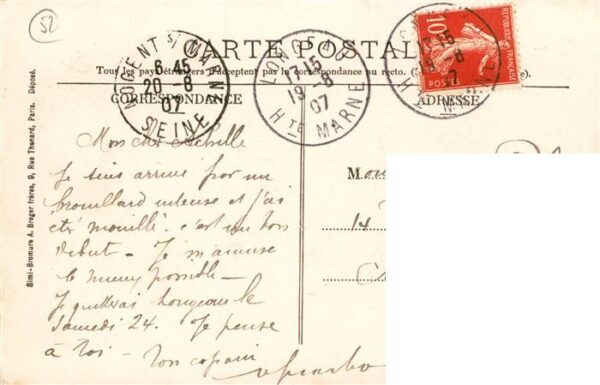 52
CARTE POSTALE
Tous les pays étrangers n'acceptent pas la correspondance au recto. (Se
CORRESPONDANCE
ADRESSE
NOGENT S/ MARNE
6.45
20-8
07
SEINE
LONGEAU
7.15
19-8
07
HTE MARNE
15
19-8
07
HTE M
10c
RÉPUBLIQUE FRANÇAISE
POSTES
Simi-Bromure A. Breger frères, 9, Rue Thenard, Paris. Déposé.
Mon cher Achille
Je suis arrivé par un
brouillard intense et j'ai
été mouillé. c'est un bon
début - Je m'amuse
le mieux possible -
Je quitterai Longeau le
Samedi 24. Je pense
à toi - ton copain
M
14